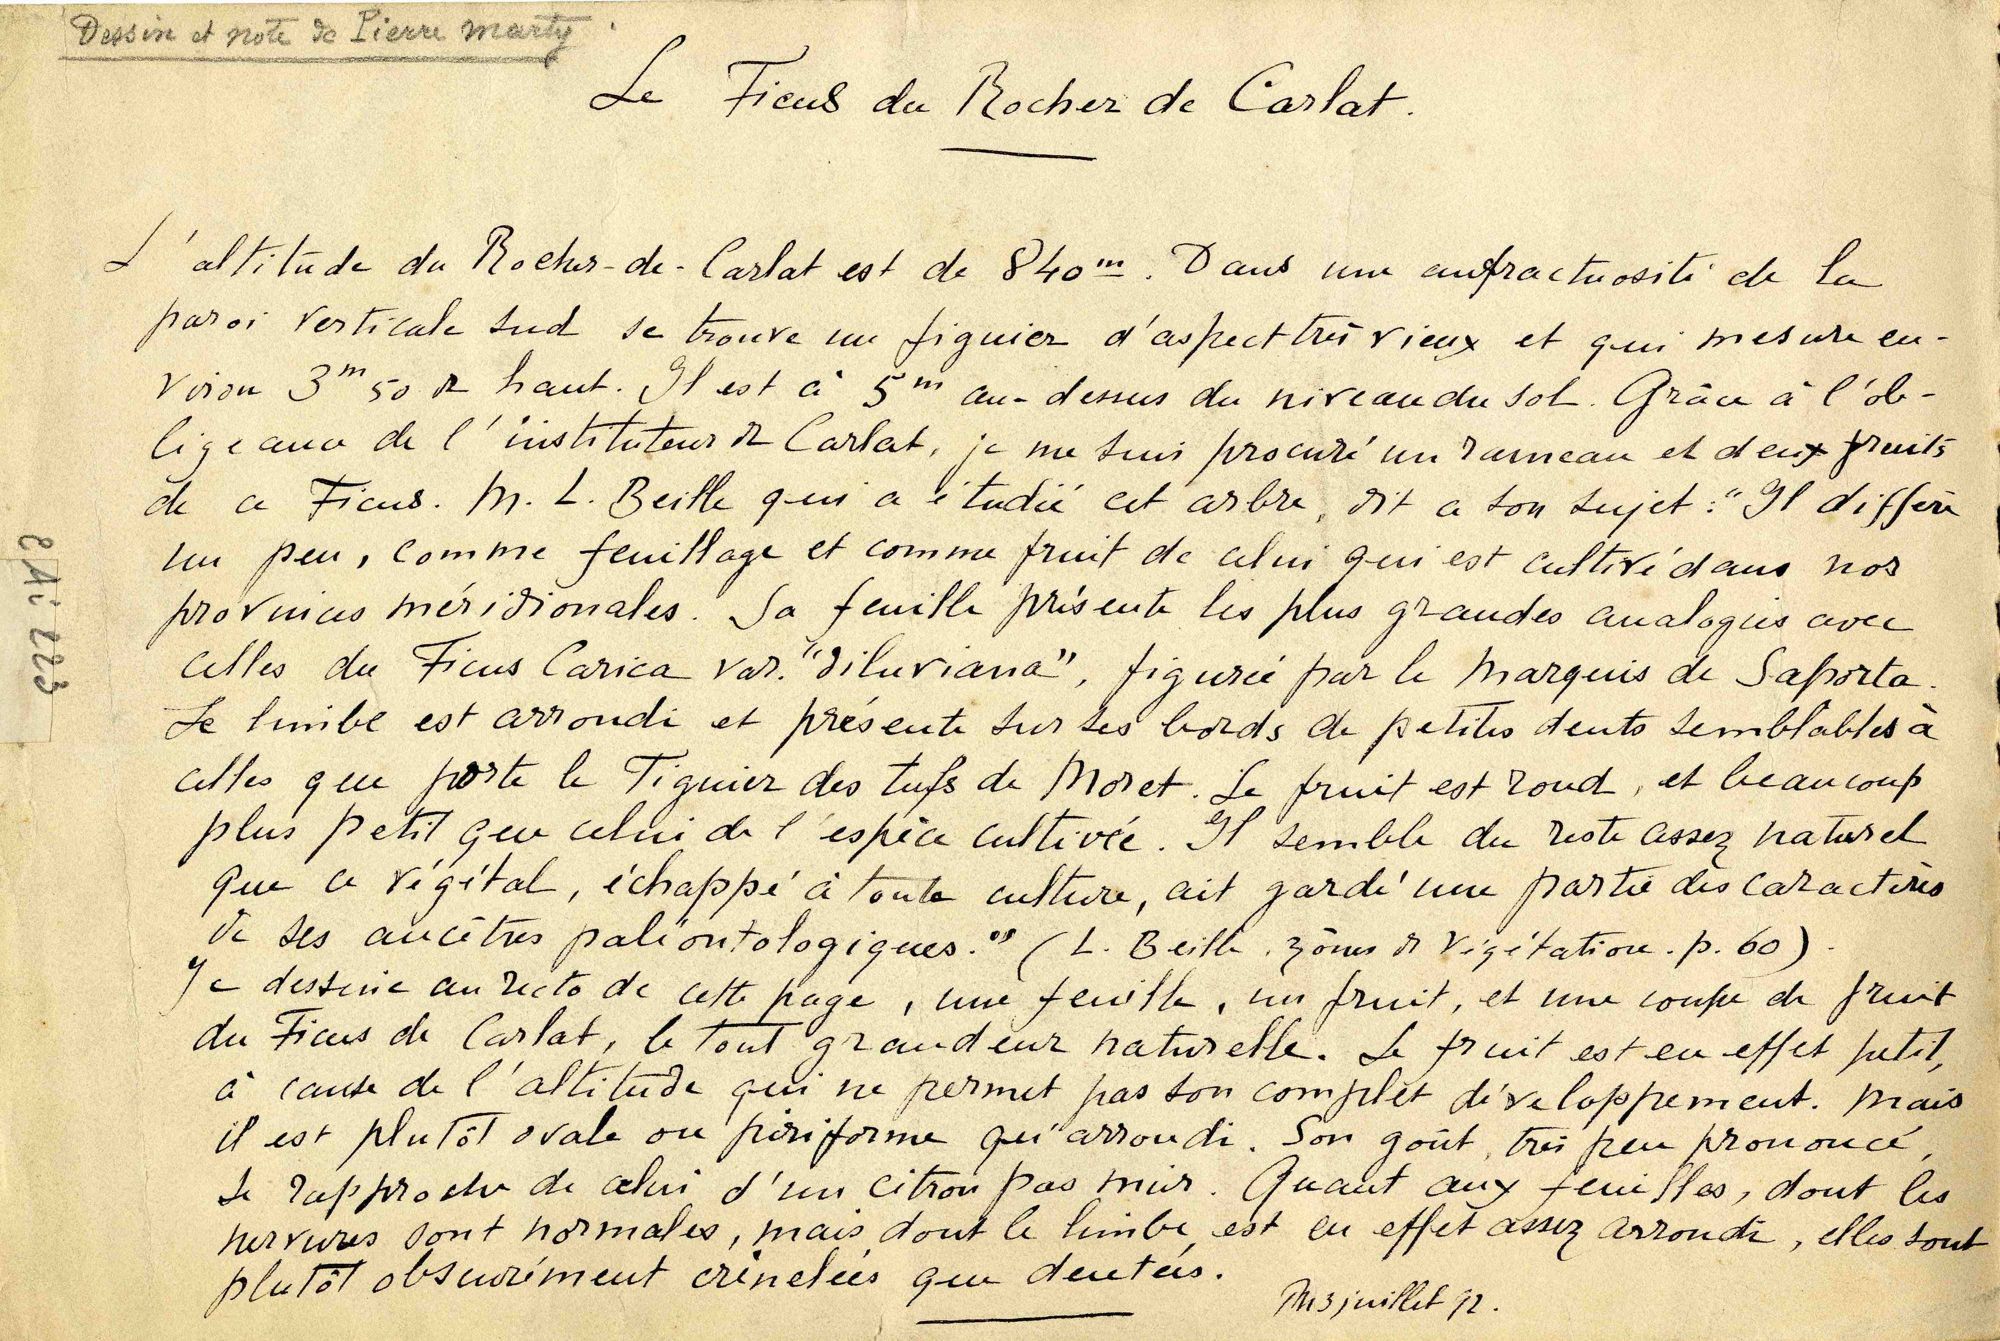 Dessin et note de Pierre Marty.
Le Ficus du Rocher de Carlat.
L'altitude du Rocher-de-Carlat est de 840m. Dans une anfractuosité de la
paroi verticale sud se trouve un figuier d'aspect très vieux et qui mesure en-
viron 3m50 de haut. Il est à 5m au-dessus du niveau du sol. Grâce à l'ob-
ligeance de l'instituteur de Carlat, je me suis procuré un rameau et deux fruits
de ce Ficus. M. L. Beille qui a étudié cet arbre, dit a son sujet : "Il diffère
un peu, comme feuillage et comme fruit de celui qui est cultivé dans nos
provinces méridionales. Sa feuille présente les plus grandes analogies avec
celles du Ficus Carica var. "diluviana", figurée par le Marquis de Saporta.
Le limbe est arrondi et présente sur ses bords de petites dents semblables à
celles que porte le Figuier des tufs de Moret. Le fruit est rond, et beaucoup
plus petit que celui de l'espèce cultivée. Il semble du reste assez naturel
que ce végétal, échappé à toute culture, ait gardé une partie des caractères
de ses ancêtres paléontologiques." (L. Beille. zônes de végétation. p. 60).
Je dessine au recto de cette page, une feuille, un fruit, et une coupe de fruit
du Ficus de Carlat, le tout grandeur naturelle. Le fruit est en effet petit,
à cause de l'altitude qui ne permet pas son complet développement. Mais
il est plutôt ovale ou piriforme qu'arrondi. Son goût, très peu prononcé,
se rapproche de celui d'un citron pas mûr. Quant aux feuilles, dont les
nervures sont normales, mais dont le limbe est en effet assez arrondi, elles sont
plutôt obscurément crénelées que dentées.
3 juillet 92.
2 Ai 223